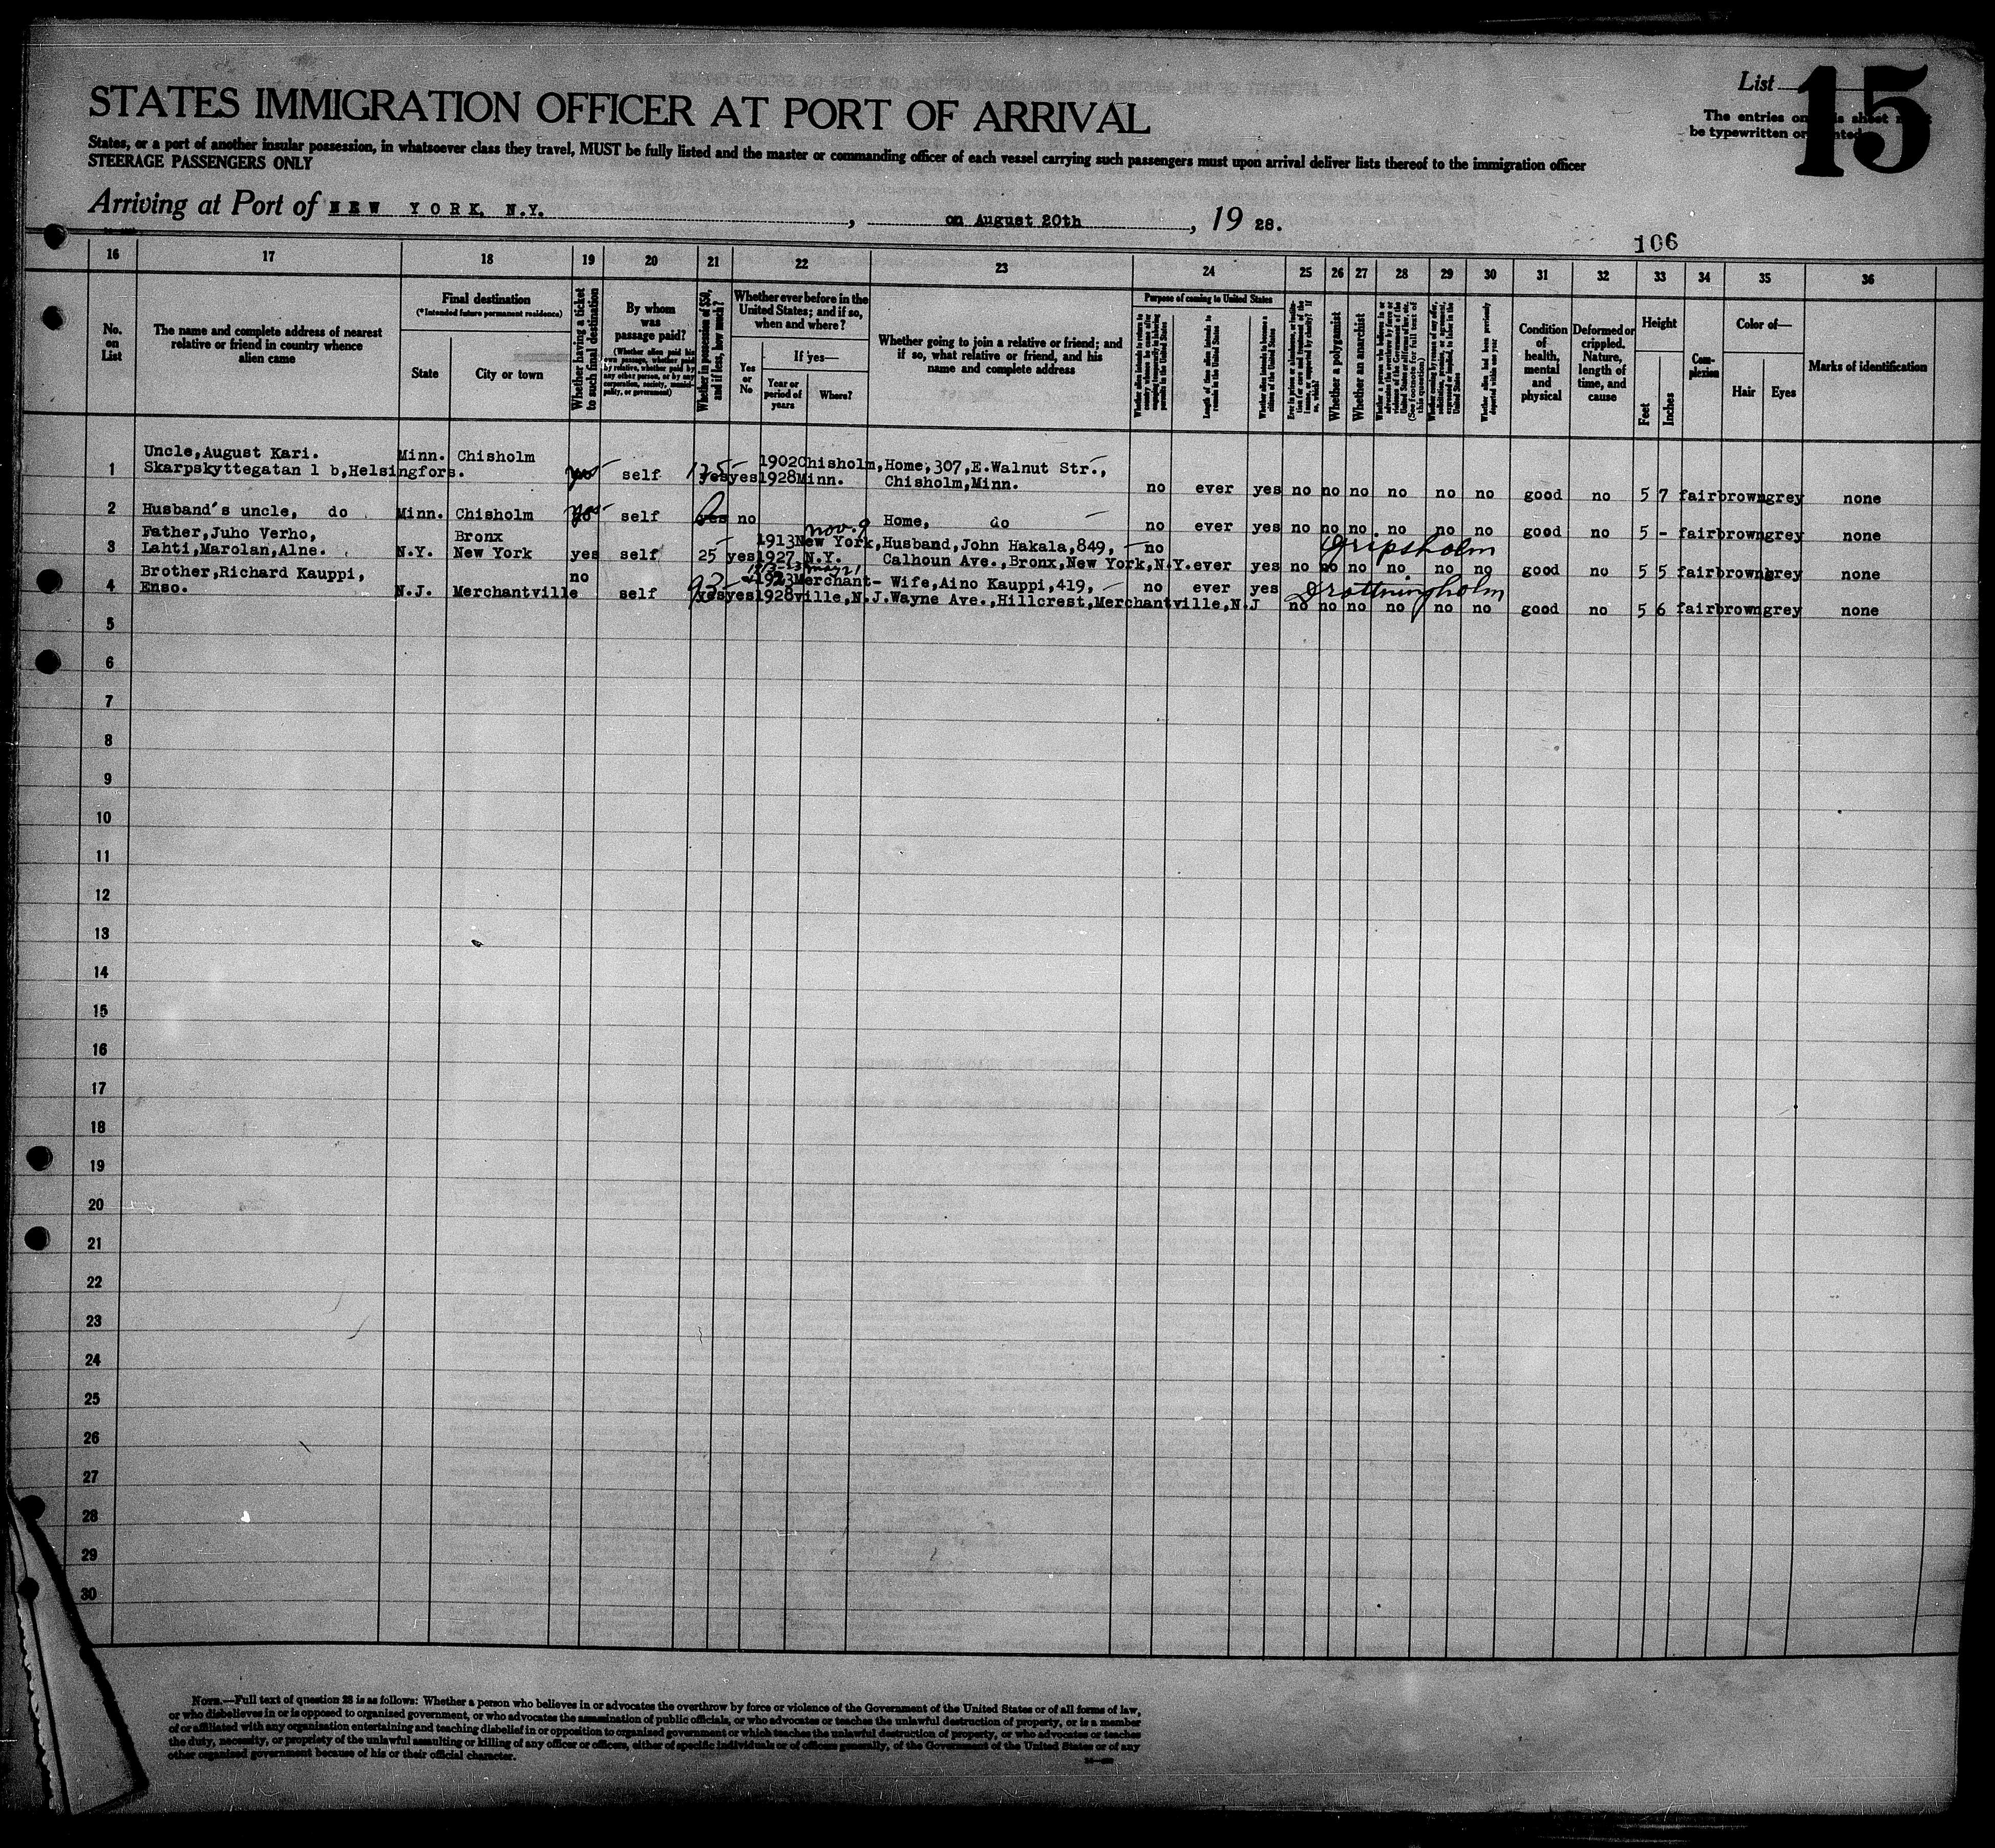 List 15
STATES IMMIGRATION OFFICER AT PORT OF ARRIVAL
The entries on sheet
be typewritten or
States, or a port of another insular possession, in whatsoever class they travel, MUST be fully listed and the master or commanding officer of each vessel carrying such passengers must upon arrival deliver lists thereof to the immigration officer
STEERAGE PASSENGERS ONLY
Arriving at Port of NEW YORK, N.Y., on August 20th, 19 28.
106
16 17 18 19 20 21 22 23 24 25 26 27 28 29 30 31 32 33 34 35 36
No. on List
The name and complete address of nearest
relative or friend in country whence
alien came
Final destination
(*Intended future permanent residence)
State
City or town
Whether having a ticket
to such final destination
By whom
was
passage paid?
(Whether alien paid his
own passage, whether paid
by relative, whether paid by
any other person, or by any
corporation, society, munici-
pality, or government)
Whether in possession of $50,
and if less, how much?
Whether ever before in the
United States; and if so,
when and where?
Yes
or
No
If yes—
Year or
period of
years
Where?
Whether going to join a relative or friend; and
if so, what relative or friend, and his
name and complete address
Purpose of coming to United States
Length of time alien intends to
remain in the United States
Whether alien intends to become a
citizen of the United States
Whether a polygamist
Whether an anarchist
Whether alien had been previously
deported within one year
Condition
of
health,
mental
and
physical
Deformed or
crippled.
Nature,
length of
time, and
cause
Height
Feet
Inches
Com-
plexion
Color of—
Hair
Eyes
Marks of identification
1 Uncle,August Kari.
Skarpskyttegatan 1 b,Helsingfors.
Minn. Chisholm
yes self 175- yes yes 1902 1928 Chisholm, Minn.
Home,307,E.Walnut Str.,
Chisholm,Minn.
no ever yes no no no no no no good no 5 7 fair brown grey none
2 Husband's uncle, do Minn. Chisholm yes self yes no Home, do no ever yes no no no no no no good no 5 - fair brown grey none
3 Father,Juho Verho,
Lahti,Marolan,Alne.
N.Y. Bronx
New York
yes self 25 yes 1913 1927 New York, N.Y. Nov. 9
Husband,John Hakala,849,
Calhoun Ave.,Bronx,New York,N.Y.
no ever yes no no no no no no good no 5 5 fair brown grey none
Gripsholm
4 Brother,Richard Kauppi,
Enso.
N.J. Merchantville
no self 93- yes yes 1923 1928 Merchant-
ville,N.J.
Wife,Aino Kauppi,419,
Wayne Ave.,Hillcrest,Merchantville,N.J
no ever yes no no no no no no good no 5 6 fair brown grey none
Drottningholm
5
6
7
8
9
10
11
12
13
14
15
16
17
18
19
20
21
22
23
24
25
26
27
28
29
30
NOTE.—Full text of question 28 is as follows: Whether a person who believes in or advocates the overthrow by force or violence of the Government of the United States or of all forms of law,
or who disbelieves in or is opposed to organized government, or who advocates the assassination of public officials, or who advocates or teaches the unlawful destruction of property, or is a member
of or affiliated with any organization entertaining and teaching disbelief in or opposition to organized government or which teaches the unlawful destruction of property, or who advocates or teaches
the duty, necessity, or propriety of the unlawful assaulting or killing of any officer or officers, either of specific individuals or of officers generally, of the Government of the United States or of any
other organized government because of his or their official character.